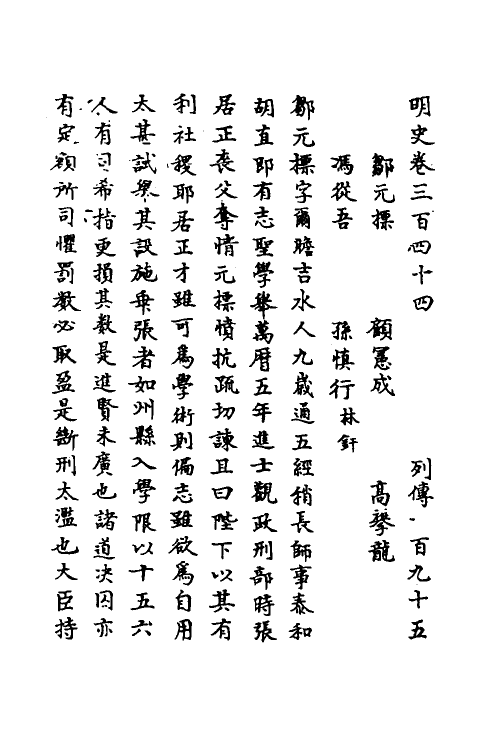 明史卷三百四十四　列傳一百九十五
鄒元標　顧憲成　高攀龍
馮從吾　孫慎行林釬
鄒元標字爾瞻吉水人九歲通五經稍長師事泰和
胡直即有志聖學舉萬曆五年進士觀政刑部時張
居正喪父奪情元標憤抗疏切諫且曰陛下以其有
利社稷耶居正才雖可為學術則偏志雖欲為自用
太甚試舉其設施乖張者如州縣入學限以十五六
人有司希指更損其數是進賢未廣也諸道决囚亦
有定額所司懼罰數必取盈是斷刑太濫也大臣持